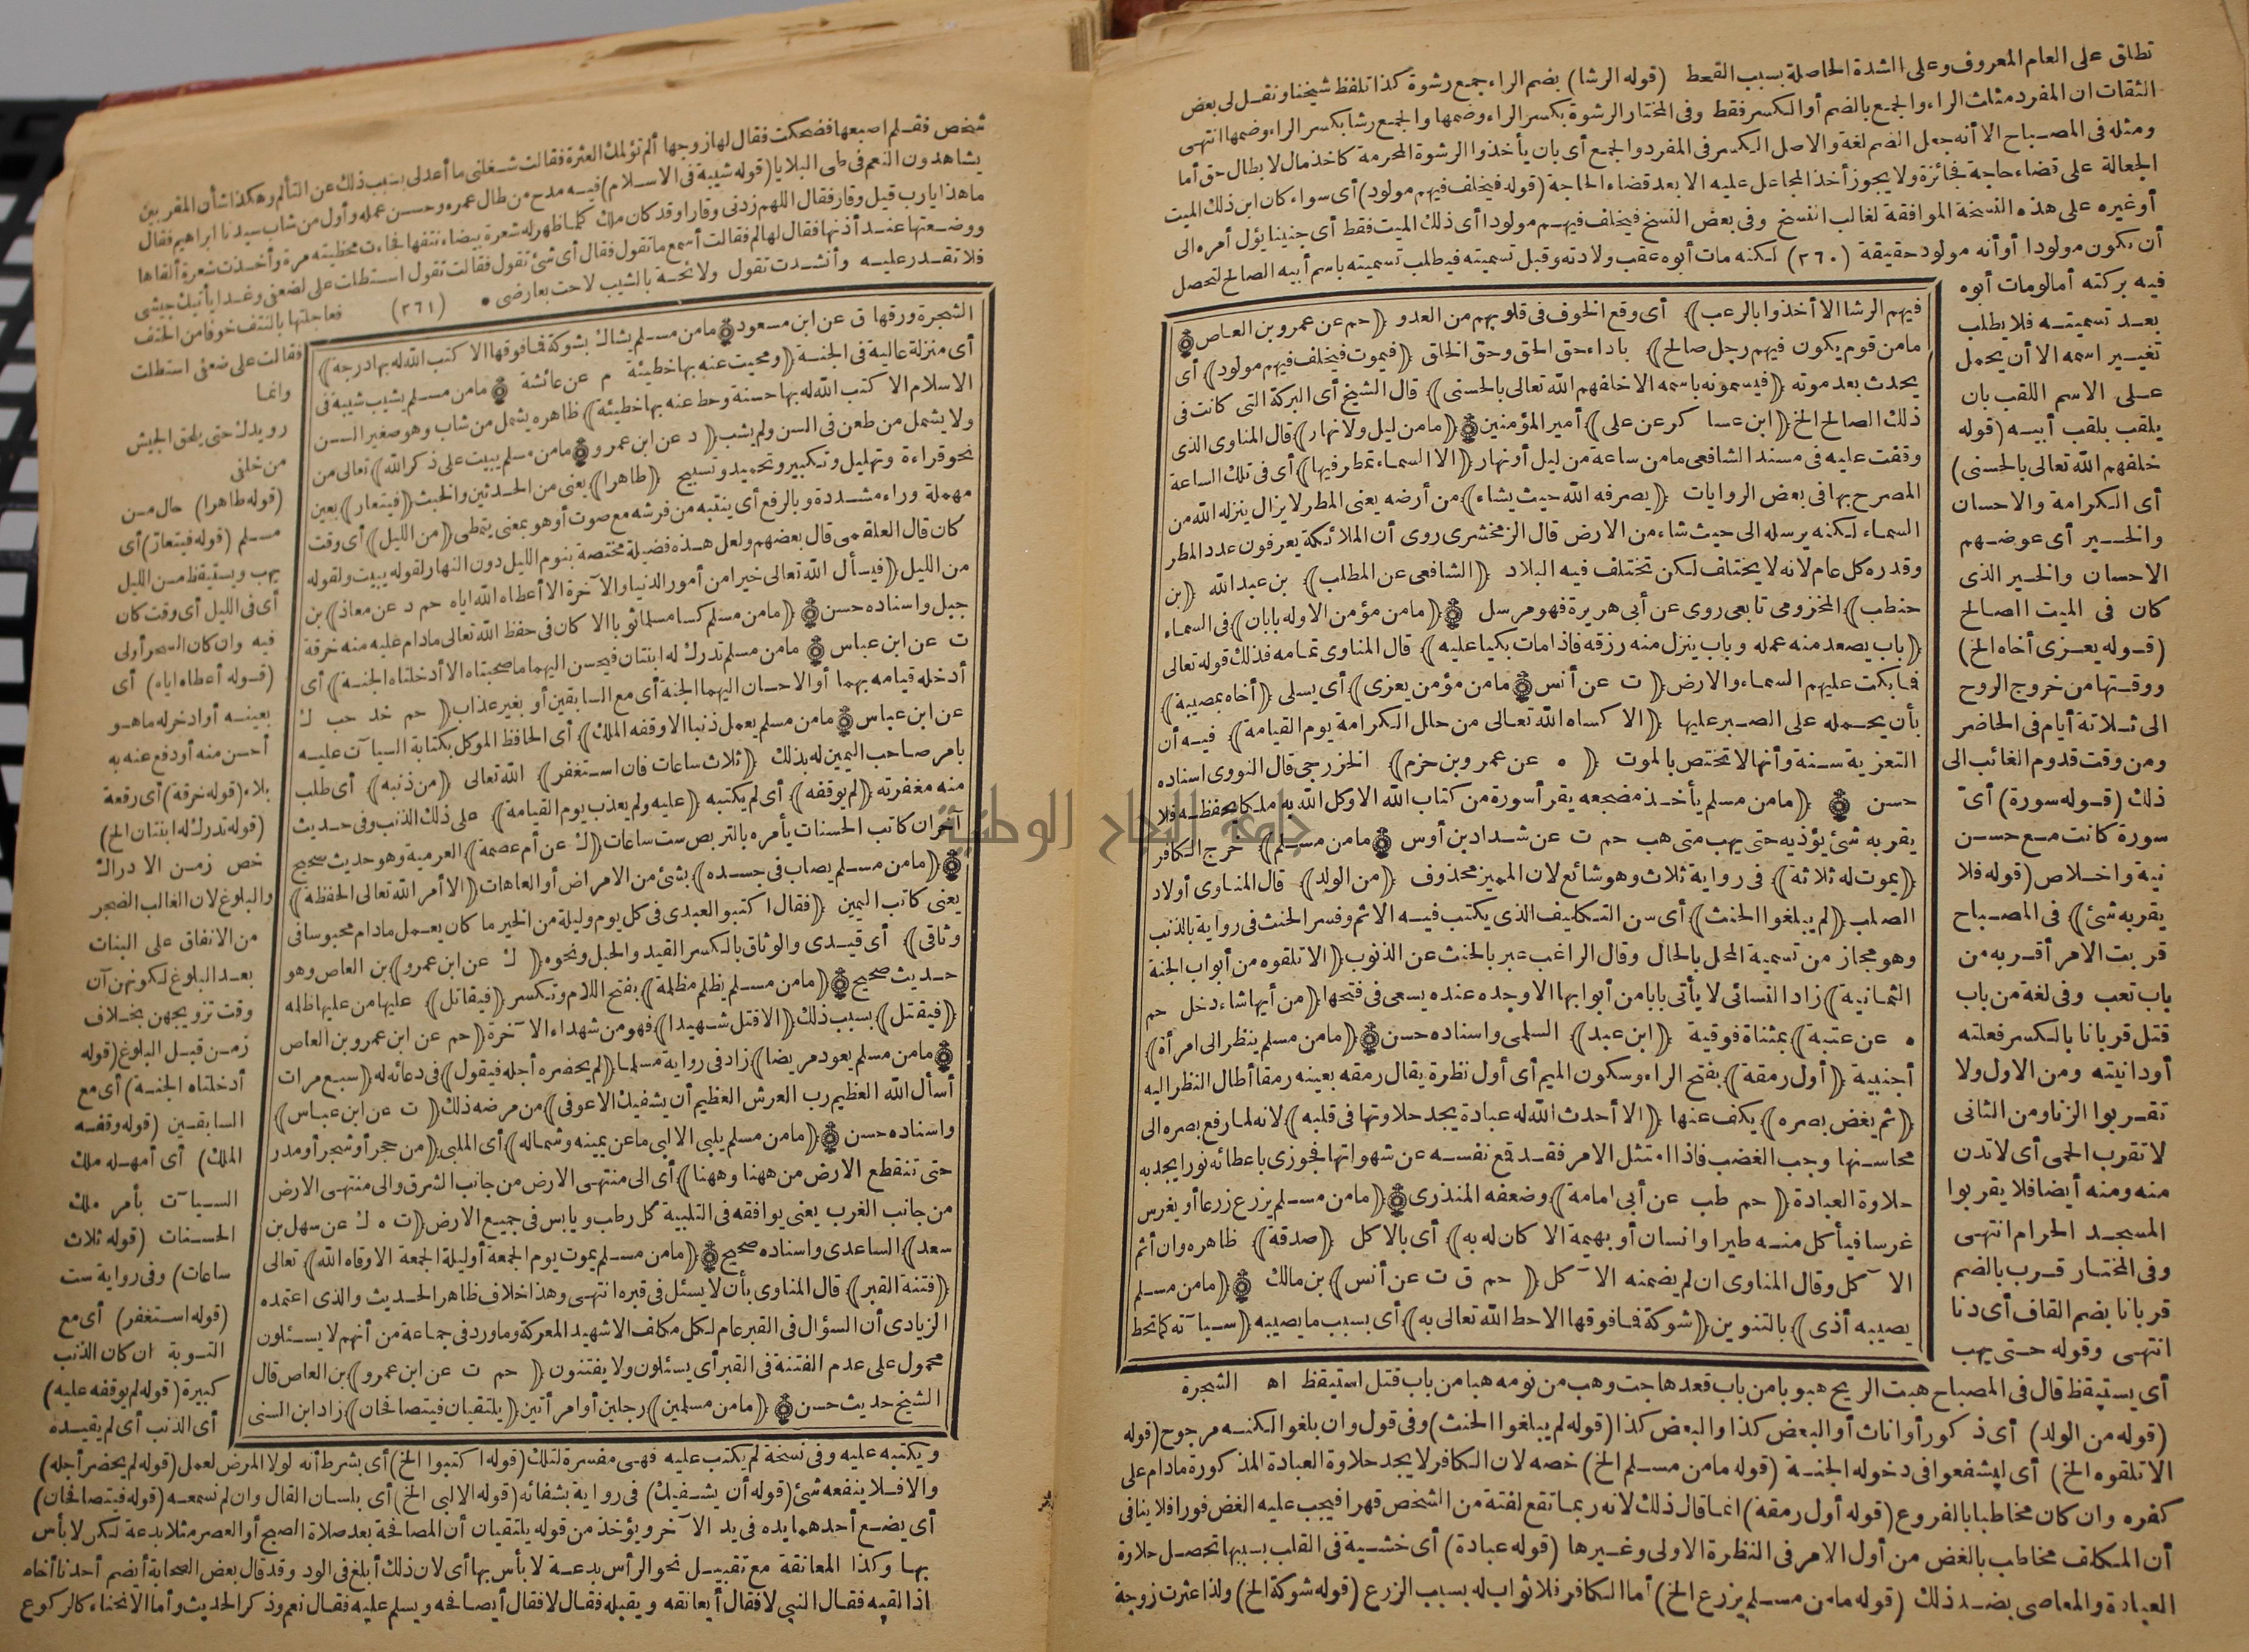 تطلق على العام المعروف وعلى الشدة الحاصلة بسبب القحط (قوله الرشا) بضم الراء جمع رشوة كذا تلفظ شيخنا ونقل لى بعض
الثقات ان المفرد مثلث الراء والجمع بالضم أو الكسر فقط وفى المختار الرشوة بكسر الراء وضمها والجمع رشا بكسر الراء وضمها انتهى
ومثله فى المصباح الا أنه جعل الضم لغة والاصل الكسر فى المفرد والجمع أى بان يأخذوا الرشوة المحرمة كاخذ مال لابطال حق أما
الجعالة على قضاء حاجة فجائزة ولا يجوز أخذ المجاعل عليه الا بعد قضاء الحاجة (قوله فيخلف فيهم مولود) أى سواء كان ابن ذلك الميت
أو غيره على هذه النسخة الموافقة لغالب النسخ وفى بعض النسخ فيخلف فيهم مولودا أى ذلك الميت فقط أى جنينا يؤل أمره الى
أن يكون مولودا أو أنه مولود حقيقة (٢٦٠) لكنه مات أبوه عقب ولادته وقبل تسميته فيطلب تسميته باسم أبيه الصالح لتحصل
فيه بركته أما لو مات أبوه
بعد تسميته فلا يطلب
تغيير اسمه الا أن يحمل
على الاسم اللقب بان
يلقب بلقب أبيه (قوله
خلفهم الله تعالى بالحسنى)
أى الكرامة والاحسان
والخير أى عوضهم
الاحسان والخير الذى
كان فى الميت الصالح
(قوله يعزى أخاه الخ)
ووقتها من خروج الروح
الى ثلاثة أيام فى الحاضر
ومن وقت قدوم الغائب الى
ذلك (قوله سورة) أى
سورة كانت مع حسن
نية واخلاص (قوله فلا
يقربه شئ) فى المصباح
قربت الامر أقربه من
باب تعب وفى لغة من باب
قتل قربانا بالكسر فعلته
أو دانيته ومن الاول ولا
تقربوا الزنا ومن الثانى
لا تقرب الحمى أى لا تدن
منه ومنه أيضا فلا يقربوا
المسجد الحرام انتهى
وفى المختار قرب بالضم
قربانا بضم القاف أى دنا
انتهى وقوله حتى يهب
فيهم الرشا الا أخذوا بالرعب) أى وقع الخوف فى قلوبهم من العدو (حم عن عمرو بن العاص
ما من قوم يكون فيهم رجل صالح) باداء حق الحق وحق الخلق (فيموت فيخلف فيهم مولود) أى
يحدث بعد موته (فيسمونه باسمه الا خلفهم الله تعالى بالحسنى) قال الشيخ أى البركة التى كانت فى
ذلك الصالح الخ (ابن عساكر عن على) أمير المؤمنين (ما من ليل ولا نهار) قال المناوى الذى
وقفت عليه فى مسند الشافعى ما من ساعة من ليل أو نهار (الا السماء تمطر فيها) أى فى تلك الساعة
المصرح بها فى بعض الروايات (يصرفه الله حيث يشاء) من أرضه يعنى المطر لا يزال ينزله الله من
السماء لكنه يرسله الى حيث شاء من الارض قال الزمخشرى روى أن الملائكة يعرفون عدد المطر
وقدره كل عام لانه لا يختلف لكن تختلف فيه البلاد (الشافعى عن المطلب) بن عبد الله (بن
حنطب) المخزومى تابعى روى عن أبى هريرة فهو مرسل (ما من مؤمن الا وله بابان) فى السماء
(باب يصعد منه عمله وباب ينزل منه رزقه فاذا مات بكيا عليه) قال المناوى تمامه فذلك قوله تعالى
فما بكت عليهم السماء والارض (ت عن أنس ما من مؤمن يعزى) أى يسلى (أخاه بمصيبة)
بأن يحمله على الصبر عليها (الا كساه الله تعالى من حلل الكرامة يوم القيامة) فيه أن
التعزية سنة وأنها لا تختص بالموت (ه عن عمرو بن حزم) الخزرجى قال النووى اسناده
حسن (ما من مسلم يأخذ مضجعه يقرأ سورة من كتاب الله الا وكل الله به ملكا يحفظه فلا
يقربه شئ يؤذيه حتى يهب متى هب حم ت عن شداد بن أوس ما من مسلم) خرج الكافر
(يموت له ثلاثة) فى رواية ثلاث وهو شائع لان المميز محذوف (من الولد) قال المناوى أولاد
الصلب (لم يبلغوا الحنث) أى سن التكليف الذى يكتب فيه الاثم وفسر الحنث فى رواية بالذنب
وهو مجاز من تسمية المحل بالحال وقال الراغب عبر بالحنث عن الذنوب (الا تلقوه من أبواب الجنة
الثمانية) زاد النسائى لا يأتى بابا من أبوابها الا وجده عنده يسعى فى فتحها (من أيها شاء دخل حم
ه عن عتبة) بمثناة فوقية (ابن عبد) السلمى واسناده حسن (ما من مسلم ينظر الى امرأة)
أجنبية (أول رمقة) بفتح الراء وسكون الميم أى أول نظرة يقال رمقه بعينه رمقا أطال النظر اليه
(ثم يغض بصره) يكف عنها (الا أحدث الله له عبادة يجد حلاوتها فى قلبه) لانه لما رفع بصره الى
محاسنها وجب الغضب فاذا امتثل الامر فقد قمع نفسه عن شهواتها فجوزى باعطائه نورا يجد به
حلاوة العبادة (حم طب عن أبى امامة) وضعفه المنذرى (ما من مسلم يزرع زرعا أو يغرس
غرسا فيأكل منه طير أو انسان أو بهيمة الا كان له به) أى بالاكل (صدقة) ظاهره وان أثم
الآكل وقال المناوى ان لم يضمنه الآكل (حم ق ت عن أنس) بن مالك (ما من مسلم
يصيبه أذى) بالتنوين (شوكة فما فوقها الا حط الله تعالى به) أى بسبب ما يصيبه (سيآته كما تحط
أى يستيقظ قال فى المصباح هبت الريح هبوبا من باب قعد هاجت وهب من نومه هبا من باب قتل استيقظ اه الشجرة
(قوله من الولد) أى ذكور أو اناث أو البعض كذا والبعض كذا (قوله لم يبلغوا الحنث) وفى قول وان بلغوا لكنه مرجوح (قوله
الا تلقوه الخ) أى ليشفعوا فى دخوله الجنة (قوله ما من مسلم الخ) خصه لان الكافر لا يجد حلاوة العبادة المذكورة مادام على
كفره وان كان مخاطبا بالفروع (قوله أول رمقة) انما قال ذلك لانه ربما تقع لفتة من الشخص قهرا فيجب عليه الغض فورا فلا ينافى
أن المكلف مخاطب بالغض من أول الامر فى النظرة الاولى وغيرها (قوله عبادة) أى خشية فى القلب بسببها تحصل حلاوة
العبادة والمعاصى بضد ذلك (قوله ما من مسلم يزرع الخ) أما الكافر فلا ثواب له بسبب الزرع (قوله شوكة الخ) ولذا عثرت زوجة
شخص فقلم اصبعها فضحكت فقال لها زوجها ألم تؤلمك العثرة فقالت شغلنى ما أعد لى بسبب ذلك عن التألم وهكذا شأن المقربين
يشاهدون النعم فى طى البلايا (قوله شيبة فى الاسلام) فيه مدح من طال عمره وحسن عمله وأول من شاب سيدنا ابراهيم فقال
ما هذا يا رب قيل وقار فقال اللهم زدنى وقارا وقد كان ملك كلما ظهر له شعرة بيضاء نتفها فجاءت محظيته مرة وأخذت شعرة ألقاها
ووضعتها عند أذنها فقال لها لم فقالت أسمع ما تقول فقال أى شئ تقول فقالت تقول استطلت على لضعفى وغدا يأتيك جيشى
فلا تقدر عليه وأنشدت تقول ولائحة بالشيب لاحت بعارضى (٢٦١) فعاجلتها بالنتف خوفا من الحتف
فقالت على ضعفى استطلت
وانما
رويدك حتى يلحق الجيش
من خلفى
(قوله طاهرا) حال من
مسلم (قوله فيتعار) أى
يهب ويستيقظ من الليل
أى فى الليل أى وقت كان
فيه وان كان السحر أولى
(قوله أعطاه اياه) أى
بعينه أو ادخر له ما هو
أحسن منه أو دفع عنه به
بلاء (قوله خرقة) أى رقعة
(قوله تدرك له ابنتان الخ)
خص زمن الادراك
والبلوغ لان الغالب الضجر
من الانفاق على البنات
بعد البلوغ لكونهن آن
وقت تزويجهن بخلاف
زمن قبل البلوغ (قوله
أدخلتاه الجنة) أى مع
السابقين (قوله وقفه
الملك) أى أمهله ملك
السيآت بأمر ملك
الحسنات (قوله ثلاث
ساعات) وفى رواية ست
(قوله استغفر) أى مع
التوبة ان كان الذنب
كبيرة (قوله لم يوقفه عليه)
أى الذنب أى لم يقيده
الشجرة ورقها ق عن ابن مسعود ما من مسلم يشاك بشوكة فما فوقها الا كتب الله له بها درجة)
أى منزلة عالية فى الجنة (ومحيت عنه بها خطيئة م عن عائشة ما من مسلم يشيب شيبة فى
الاسلام الا كتب الله له بها حسنة وحط عنه بها خطيئة) ظاهره يشمل من شاب وهو صغير السن
ولا يشمل من طعن فى السن ولم يشب (د عن ابن عمرو ما من مسلم يبيت على ذكر الله) تعالى من
نحو قراءة وتهليل وتكبير وتحميد وتسبيح (طاهرا) يعنى من الحدثين والخبث (فيتعار) بعين
مهملة وراء مشددة وبالرفع أى ينتبه من فرشه مع صوت أو هو بمعنى يتمطى (من الليل) أى وقت
كان قال العلقمى قال بعضهم ولعل هذه فضيلة مختصة بنوم الليل دون النهار لقوله يبيت ولقوله
من الليل (فيسأل الله تعالى خيرا من أمور الدنيا والآخرة الا أعطاه الله اياه حم د عن معاذ) بن
جبل واسناده حسن (ما من مسلم كسا مسلما ثوبا الا كان فى حفظ الله تعالى مادام عليه منه خرقة
ت عن ابن عباس ما من مسلم تدرك له ابنتان فيحسن اليهما ما صحبتاه الا أدخلتاه الجنة) أى
أدخله قيامه بهما أو الاحسان اليهما الجنة أى مع السابقين أو بغير عذاب (حم خد حب ك
عن ابن عباس ما من مسلم يعمل ذنبا الا وقفه الملك) أى الحافظ الموكل بكتابة السيآت عليه
بامر صاحب اليمين له بذلك (ثلاث ساعات فان استغفر) الله تعالى (من ذنبه) أى طلب
منه مغفرته (لم يوقفه) أى لم يكتبه (عليه ولم يعذب يوم القيامة) على ذلك الذنب وفى حديث
آخر ان كاتب الحسنات يأمره بالتربص ست ساعات (ك عن أم عصمة) العرمية وهو حديث صحيح
(ما من مسلم يصاب فى جسده) بشئ من الامراض أو العاهات (الا أمر الله تعالى الحفظة)
يعنى كاتب اليمين (فقال اكتبوا لعبدى فى كل يوم وليلة من الخير ما كان يعمل مادام محبوسا فى
وثاقى) أى قيدى والوثاق بالكسر القيد والحبل ونحوه (ك عن ابن عمرو) بن العاص وهو
حديث صحيح (ما من مسلم يظلم مظلمة) بفتح اللام وتكسر (فيقاتل) عليها من عليها ظلمه
(فيقتل) بسبب ذلك (الا قتل شهيدا) فهو من شهداء الآخرة (حم عن ابن عمرو بن العاص
ما من مسلم يعود مريضا) زاد فى رواية مسلما (لم يحضره أجله فيقول) فى دعائه له (سبع مرات
أسأل الله العظيم رب العرش العظيم أن يشفيك الا عوفى) من مرضه ذلك (ت عن ابن عباس)
واسناده حسن (ما من مسلم يلبى الا لبى ما عن يمينه وشماله) أى الملبى (من حجر أو شجر أو مدر
حتى تنقطع الارض من ههنا وههنا) أى الى منتهى الارض من جانب الشرق والى منتهى الارض
من جانب الغرب يعنى يوافقه فى التلبية كل رطب ويابس فى جميع الارض (ت ه ك عن سهل بن
سعد) الساعدى واسناده صحيح (ما من مسلم يموت يوم الجمعة أو ليلة الجمعة الا وقاه الله) تعالى
(فتنة القبر) قال المناوى بأن لا يسئل فى قبره انتهى وهذا خلاف ظاهر الحديث والذى اعتمده
الزيادى أن السؤال فى القبر عام لكل مكلف الا شهيد المعركة وما ورد فى جماعة من أنهم لا يسئلون
محمول على عدم الفتنة فى القبر أى يسئلون ولا يفتنون (حم ت عن ابن عمرو) بن العاص قال
الشيخ حديث حسن (ما من مسلمين) رجلين أو امرأتين (يلتقيان فيتصافحان) زاد ابن السنى
ويكتبه عليه وفى نسخة لم يكتب عليه فهى مفسرة لتلك (قوله اكتبوا الخ) أى بشرط أنه لولا المرض لعمل (قوله لم يحضر أجله)
والا فلا ينفعه شئ (قوله أن يشفيك) فى رواية بشفائه (قوله الا لبى الخ) أى بلسان القال وان لم نسمعه (قوله فيتصافحان)
أى يضع أحدهما يده فى يد الآخر ويؤخذ من قوله يلتقيان أن المصافحة بعد صلاة الصبح أو العصر مثلا بدعة لكن لا بأس
بها وكذا المعانقة مع تقبيل نحو الرأس بدعة لا بأس بها أى لان ذلك أبلغ فى الود وقد قال بعض الصحابة أيضم أحدنا أخاه
اذا لقيه فقال النبى لا فقال أيعانقه ويقبله فقال لا فقال أيصافحه ويسلم عليه فقال نعم وذكر الحديث وأما الانحناء كالركوع
جامعة النجاح الوطنية